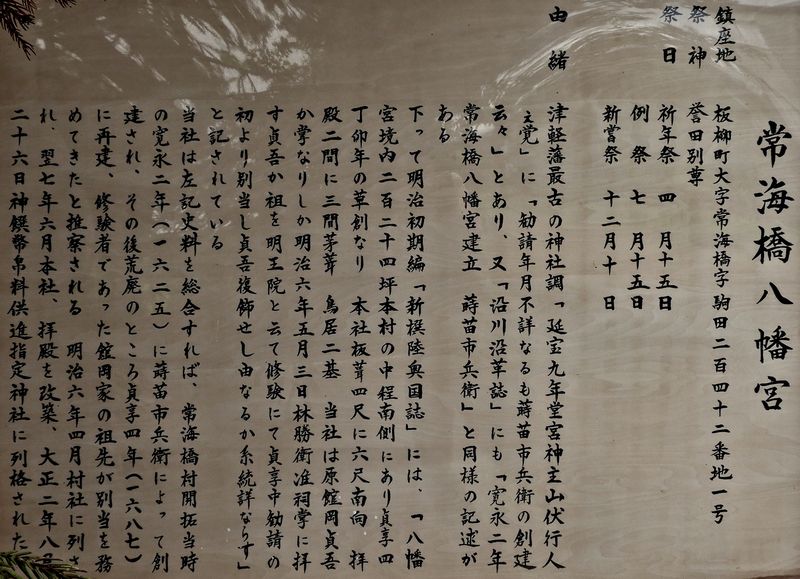 常海橋八幡宮
鎮座地　板柳町大字常海橋字駒田二百四十二番地一号
祭　神　誉田別尊
祭　日　祈年祭　四　月十五日
例　祭　七　月十五日
新嘗祭　十二月十　日
由　緒　津軽藩最古の神社調「延宝九年堂宮神主山伏行人
立覚」に「勧請年月不詳なるも蒔苗市兵衛の創建
云々」とあり、又「沿川沿革誌」にも「寛永二年
常海橋八幡宮建立　蒔苗市兵衛」と同様の記述が
ある
下って明治初期編「新撰陸奥国誌」には、「八幡
宮境内二百二十四坪本村の中程南側にあり貞享四
丁卯年の草創なり　本社板葺四尺に六尺南向　拝
殿二間に三間茅葺　鳥居二基　当社は原舘岡貞吾
か掌なりしか明治六年五月三日林勝衛准祠掌に拝
す貞吾か祖を明王院と云て修験にて貞享中勧請の
初より別当し貞吾復飾せし由なるか系統詳ならす」
と記されている
当社は左記史料を総合すれば、常海橋村開拓当時
の寛永二年（一六二五）に蒔苗市兵衛によって創
建され、その後荒廃のところ貞享四年（一六八七）
に再建、修験者であった舘岡家の祖先が別当を務
めてきたと推察される　明治六年四月村社に列さ
れ、翌七年六月本社、拝殿を改築、大正二年八月
二十六日神饌幣帛料供進指定神社に列格された